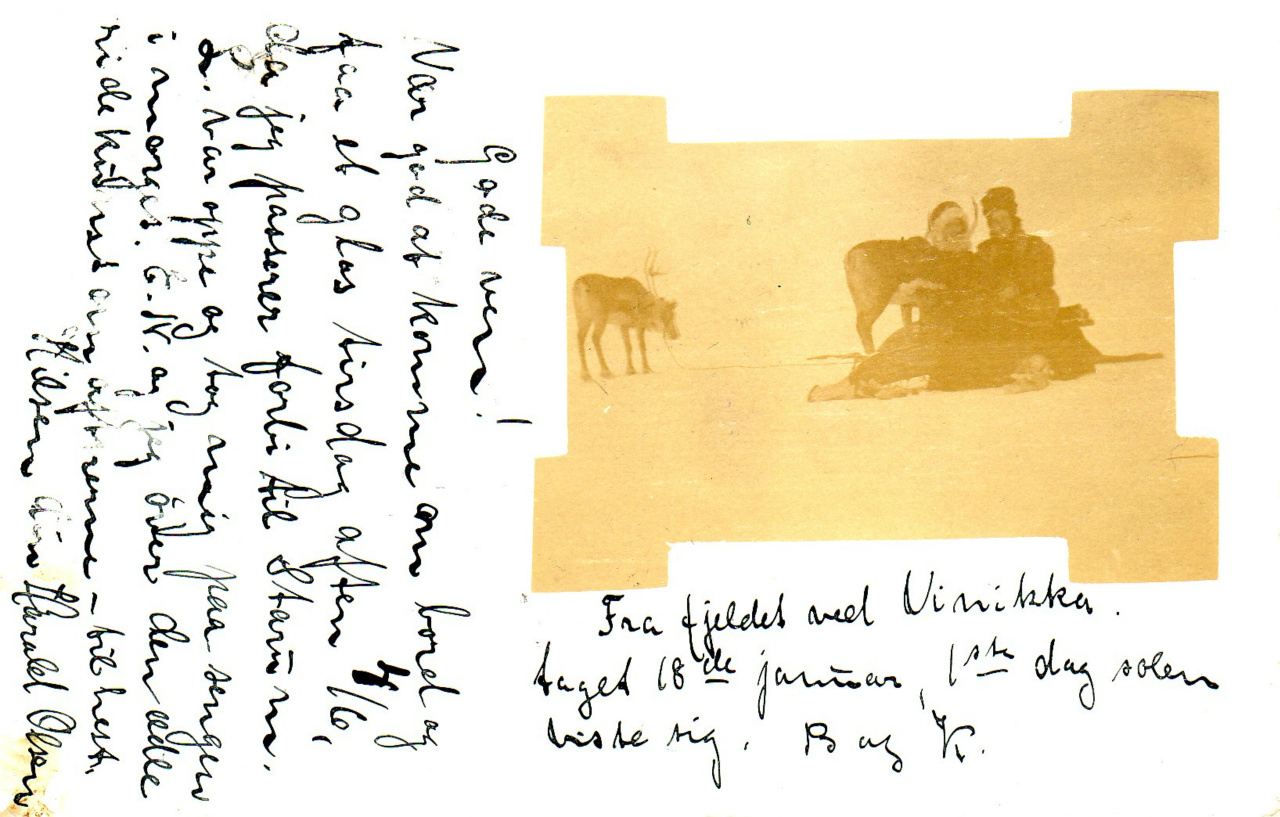 Gode ven!
Vær god at komme om bord og
faa et glas tirsdag aften 4/6,
da jeg passerer forbi til Stamsun.
L. var oppe og tog mig paa sengen
i morges. E. N. og jeg över den ædle
ridekunst om aftenerne – til hest.
Hilsen din Harald Olsen
Fra fjeldet ved Vinikka.
taget 18de januar, 1ste dag solen
viste sig. B og K.